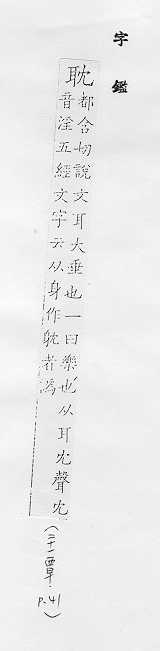 字鑑
耽
都含切說文耳大垂也一曰樂也从耳冘聲冘
音淫五經文字云从身作躭者為
p.41